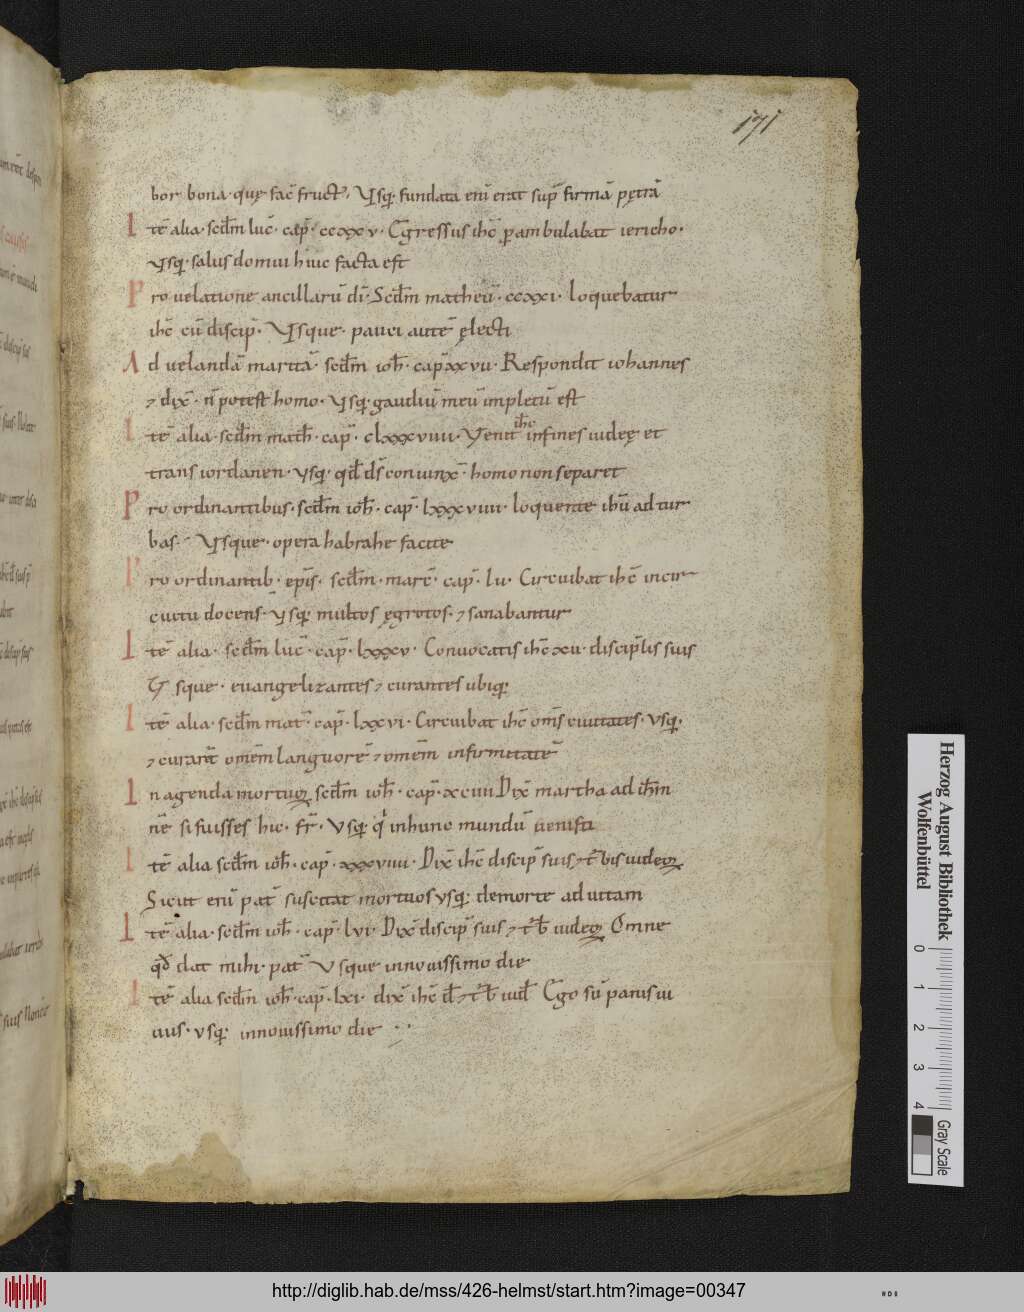 171
bor bona · quę fac̄ fruct̄, Ysq; fundata eni̅ erat sup̄ firmā pętrā
Itē alia · scd̄m luc̄ · cap̄ · ccxxv · Egressus ih̄c p̄ambulabat iericho ·
Ysq; · salus domui huic facta est
Pro uelatione ancillarū di · Scd̄m matheū · ccxxi · loquebatur
ih̄c cū discip̄ · Ysque · pauci autē ęlecti
Ad uelandā maritā · scd̄m ioh̄ · cap̄ xxvii · Respondit iohannes
⁊ dix̄ · n̄ potest homo · Ysq; gaudiū meū impletū est
Itē alia · scd̄m math̄ · cap̄ · clxxxviiii · Venit ih̄c in fines iudeę et
trans iordanen · ysq; · qd̄ ds̄ coniunx̄ · homo non separet
Pro ordinantibus · scd̄m ioh̄ · cap̄ · lxxxviiii · loquente ihū ad tur
bas · Ysque · opera habrahe facite
Pro ordinantib · ep̄is · scd̄m · marc̄ · cap̄ · lii · Circuibat ih̄c in cir
cuitu docens · ysq; multos ęgrotos · ⁊ sanabantur
Itē alia · scd̄m luc̄ · cap̄ · lxxxv · Conuocatis ih̄c xii · discip̄lis suis
Ysque · euangelizantes ⁊ curantes ubiq;
Itē alia · scd̄m mat̄ · cap̄ · lxxvi · Circuibat ih̄c om̄s ciuitates · vsq; ·
⁊ curaret omēm languorē ⁊ omēm infirmitatē
In agenda mortuoꝝ scd̄m ioh̄ · cap̄ · xciiii Dix̄ martha ad ih̄m
nē si fuisses hic · fr̄ · Vsq; q̇ in hunc mundū uenisti
Itē alia scd̄m ioh̄ · cap̄ · xxxviiii · Dix̄ ih̄c discip̄ suis ⁊ t̄bis iudeoꝝ
Sicut eni̅ pat̄ suscitat mortuos vsq; de morte ad uitam
Itē alia · scd̄m ioh̄ · cap̄ · lvi · Dix̄ discip̄ suis ⁊ t̄b̄ iudeoꝝ Omne
qd̄ dat mihi · pat̄ Vsque in nouissimo die
Itē alia scd̄m ioh̄ · cap̄ · lxi · dix̄ ih̄c d̄ ⁊ t̄b̄ iud̄ Ego sū panis ui
uus · vsq; in nouissimo die
Herzog August Bibliothek
Wolfenbüttel
0 1 2 3 4
Gray Scale
http://diglib.hab.de/mss/426-helmst/start.htm?image=00347